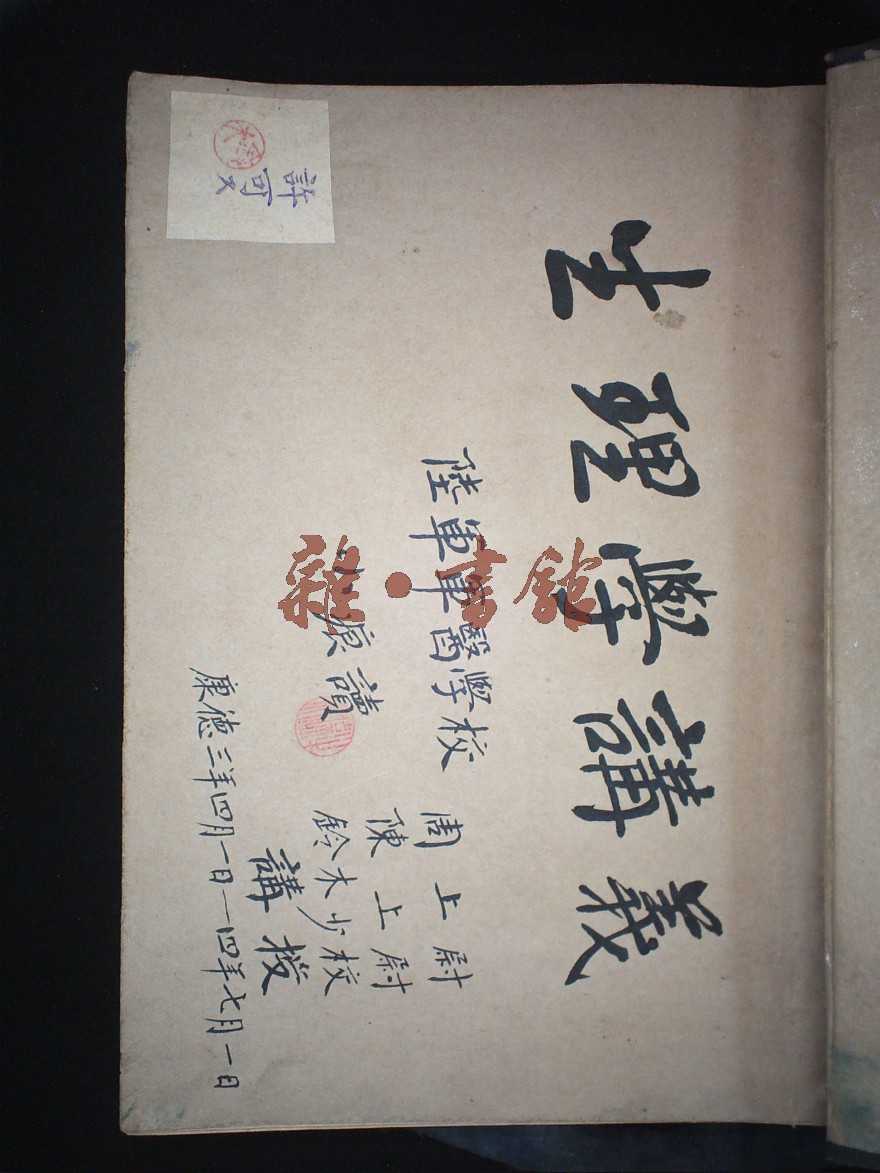 生理學講義
陸軍軍醫學校
周上尉
陳上尉
鈴木少校
講授
讀
康德三年四月一日—四年七月一日
許可
雜·書館